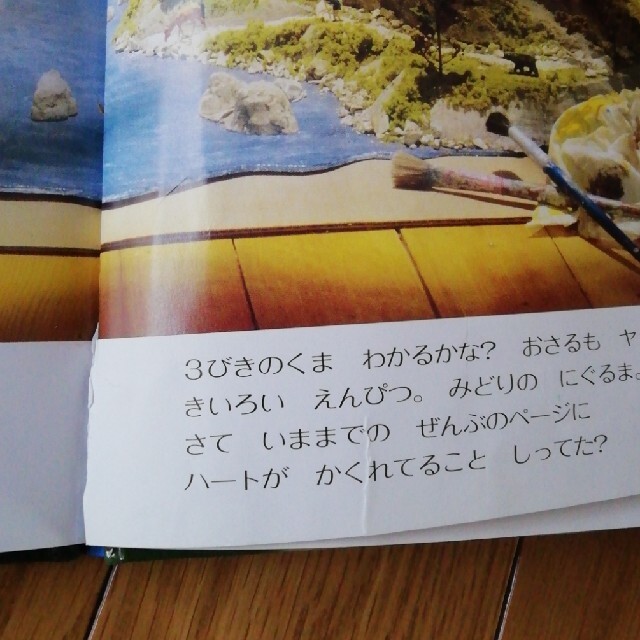 3びきのくま わかるかな? おさるも ヤ
きいろい えんぴつ。 みどりの にぐるま。
さて いままでの ぜんぶのページに
ハートが かくれてること しってた?